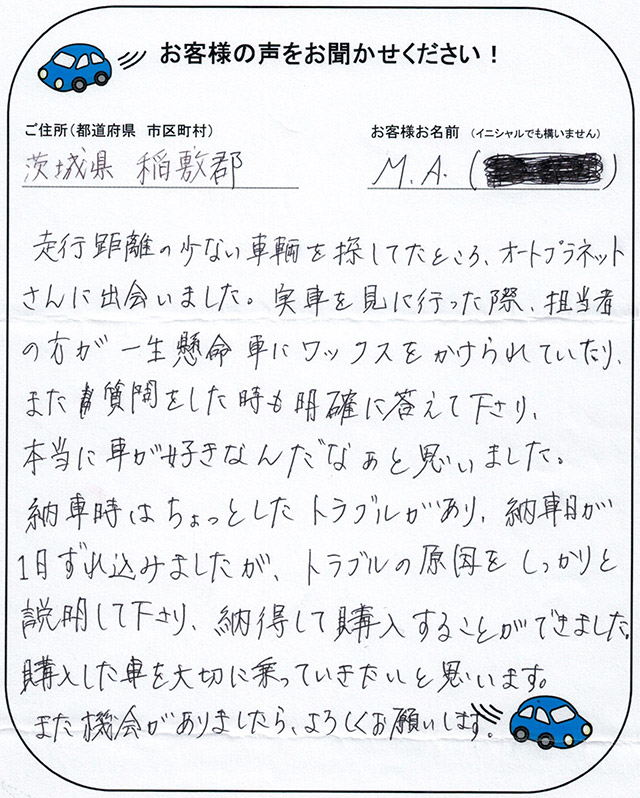 お客様の声をお聞かせください！
ご住所（都道府県 市区町村）
お客様お名前 （イニシャルでも構いません）
茨城県 稲敷郡
M.A. ( )
走行距離の少ない車輌を探してたところ、オートプラネット
さんに出会いました。実車を見に行った際、担当者
の方が一生懸命車にワックスをかけられていたり、
また質問をした時も明確に答えて下さり、
本当に車が好きなんだなぁと思いました。
納車時はちょっとしたトラブルがあり、納車日が
1日ずれ込みましたが、トラブルの原因をしっかりと
説明して下さり、納得して購入することができました。
購入した車を大切に乗っていきたいと思います。
また機会がありましたら、よろしくお願いします。